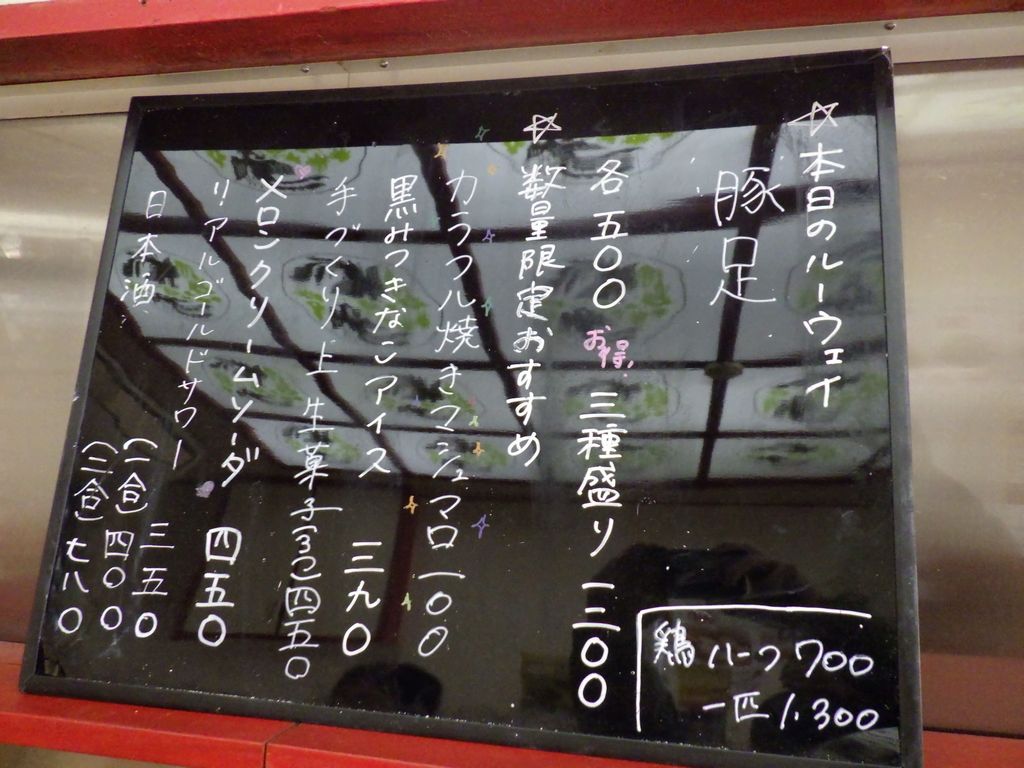 ☆本日のルーウェイ
豚足
各五〇〇 お得! 三種盛り 一二〇〇
☆数量限定おすすめ
カラフル焼きマシュマロ 一〇〇
黒みつきなこアイス 三九〇
手づくり上生菓子(3コ) 四五〇
メロンクリームソーダ 四五〇
リアルゴールドサワー 三五〇
日本酒 (一合) 四〇〇
(二合) 七八〇
鶏 ハーフ 700
一匹 1.300